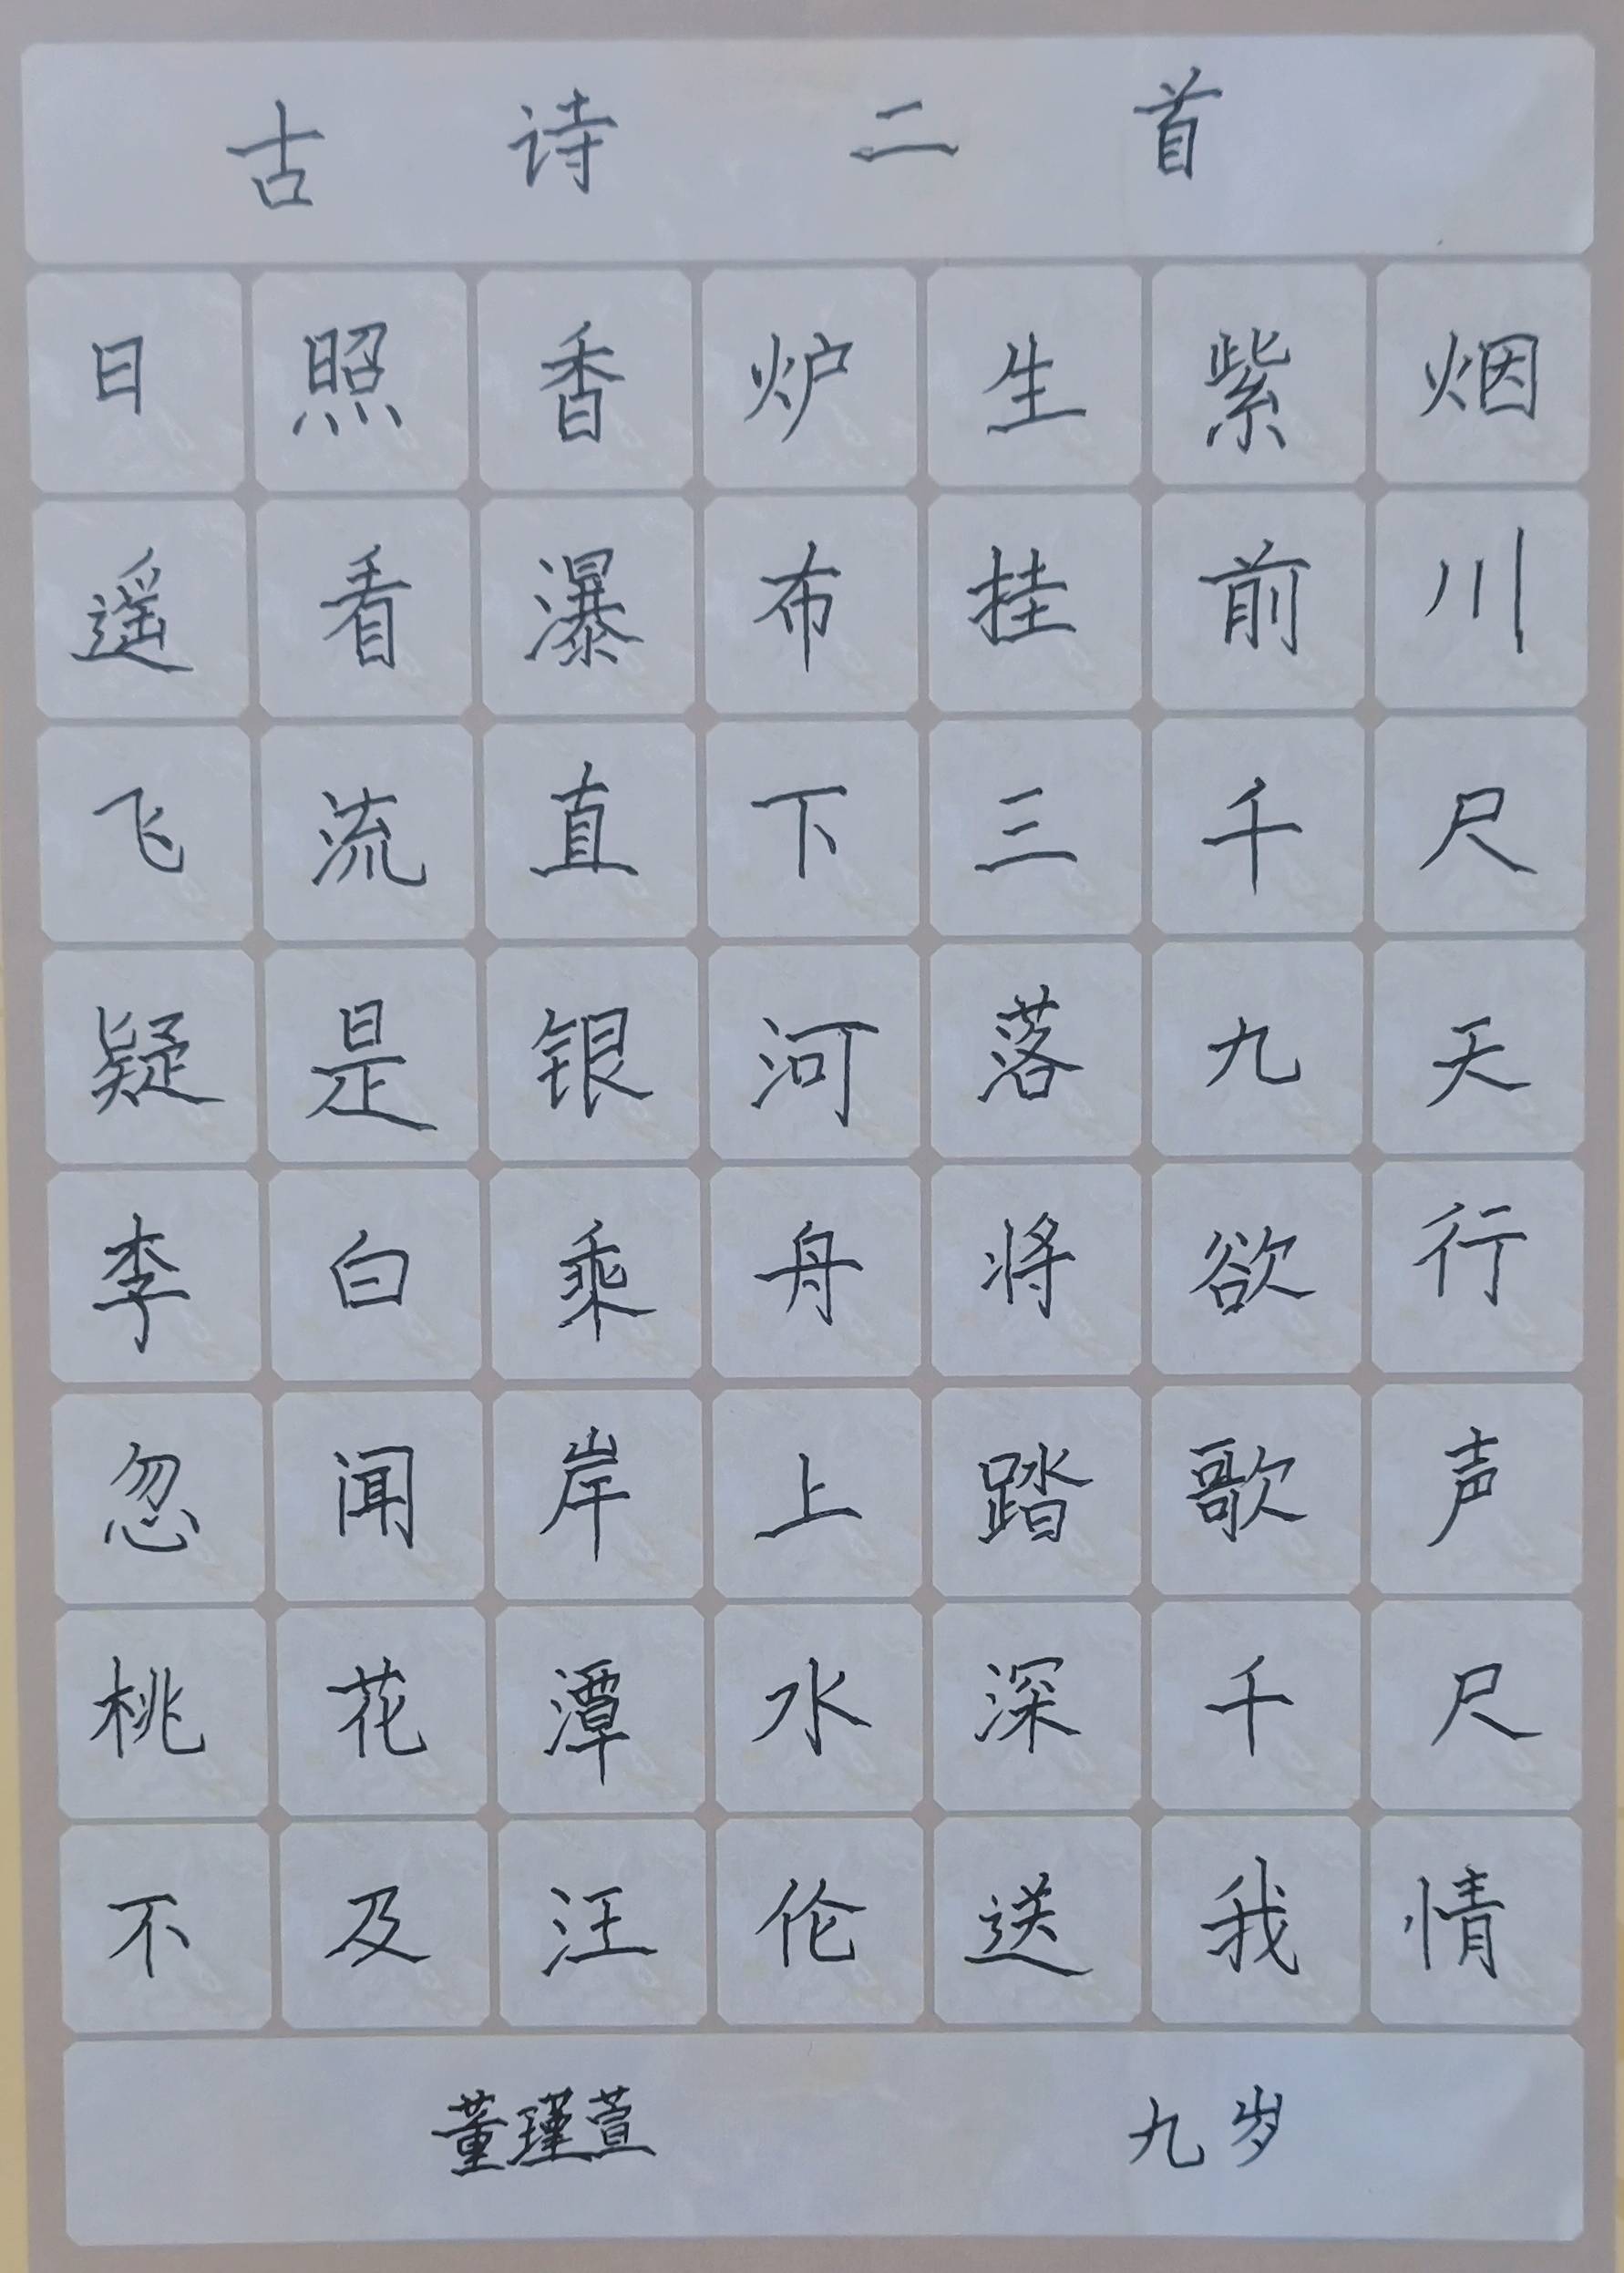 古诗二首
日照香炉生紫烟
遥看瀑布挂前川
飞流直下三千尺
疑是银河落九天
李白乘舟将欲行
忽闻岸上踏歌声
桃花潭水深千尺
不及汪伦送我情
董瑾萱 九岁